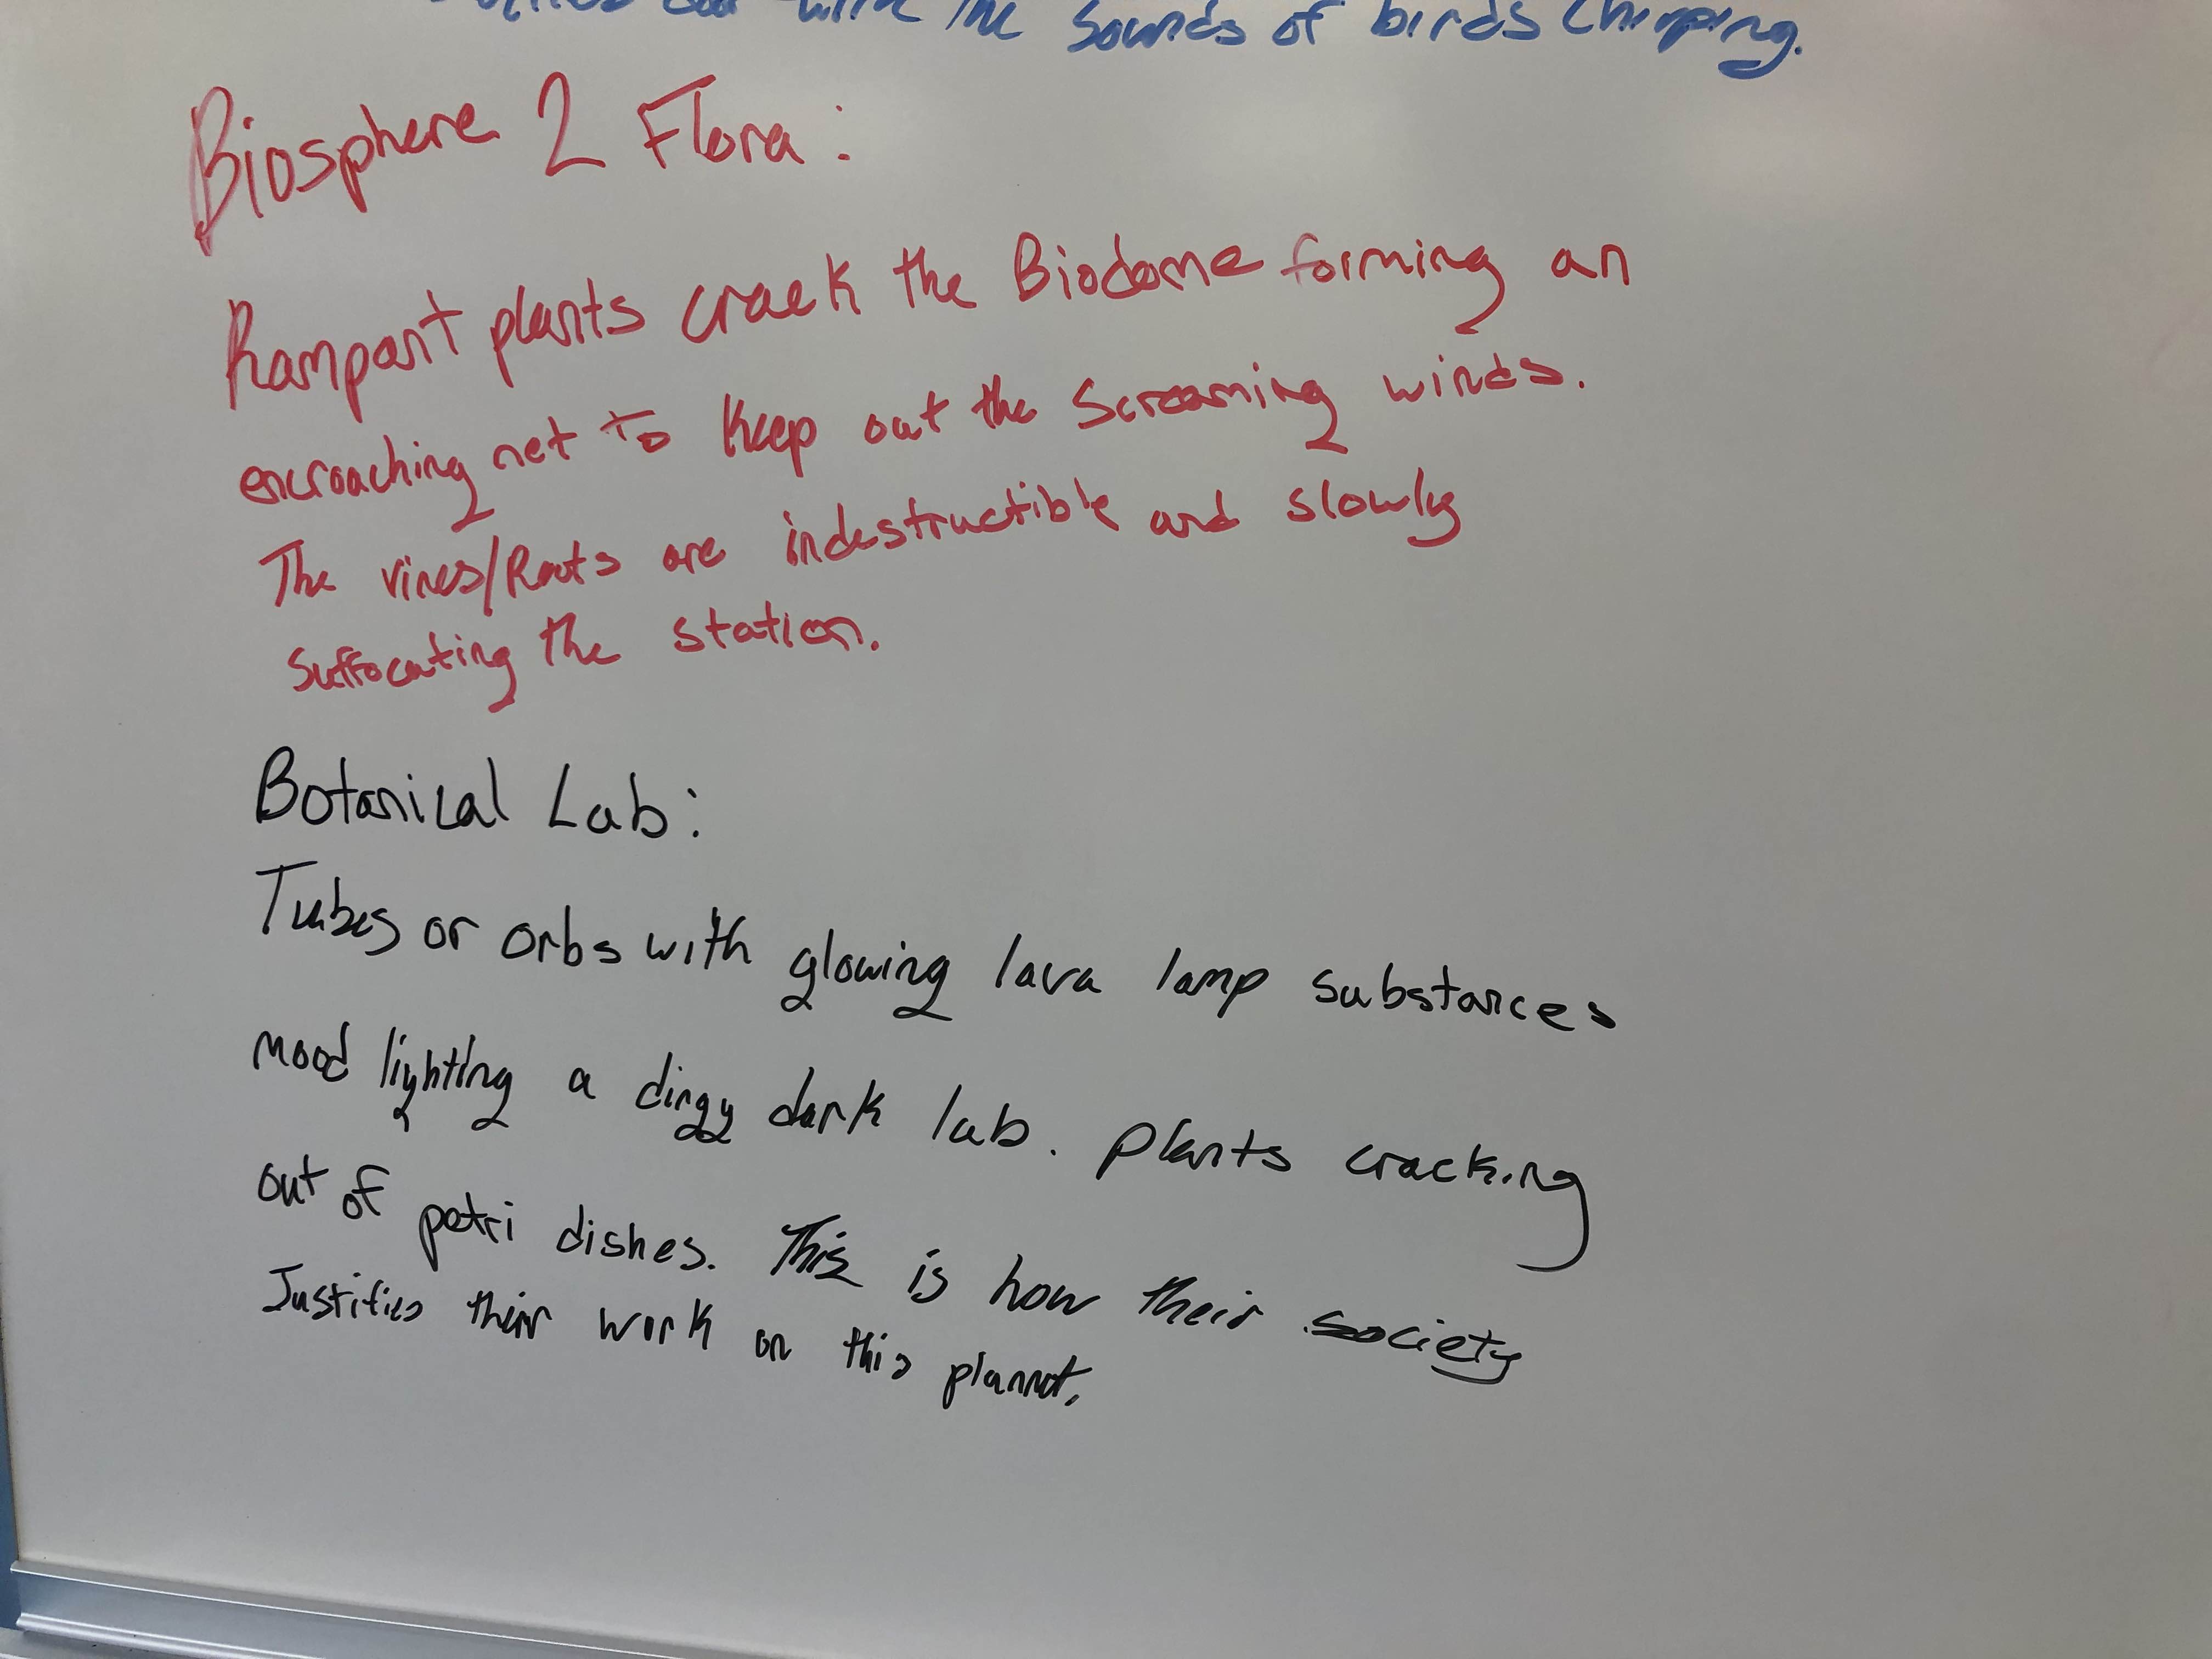 with the sounds of birds chirping.
Biosphere 2 Flora:
Rampant plants crack the Biodome forming an
encroaching net to keep out the screaming winds.
The vines/Roots are indestructible and slowly
suffocating the station.
Botanical Lab:
Tubes or orbs with glowing lava lamp substances
mood lighting a dingy dark lab. plants cracking
out of petri dishes. This is how their society
Justifies their work on this plannet.